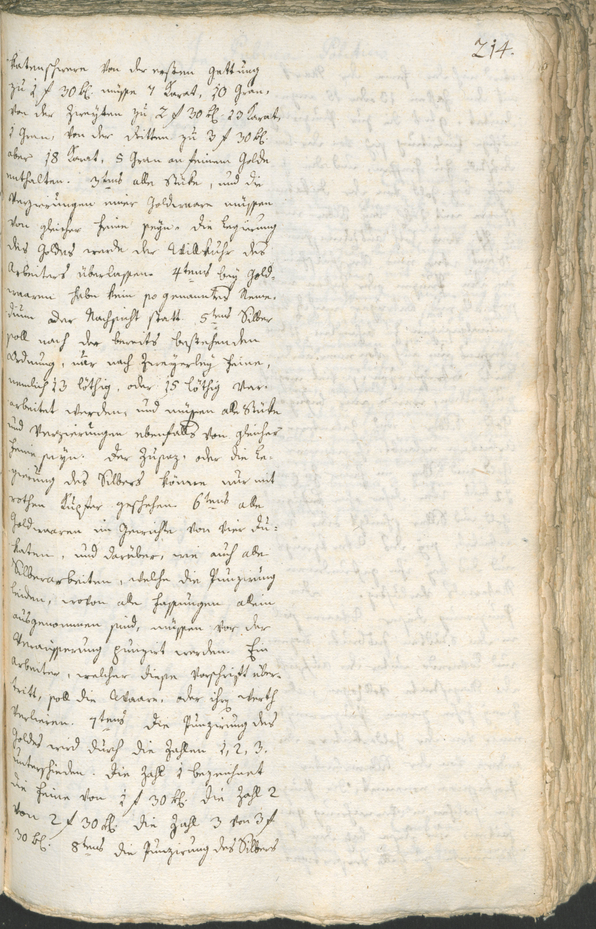 214.
katenschwere von der ersten Gattung
zu 1 f 30 kr. müsse 7 Karat, 10 Gran,
von der Zweyten zu 2 f 30 kr. 13 Karat,
1 Gran, von der dritten zu 3 f 30 kr.
aber 18 Karat, 5 Gran an feinem Golde
enthalten. 3tens alle Stüke, und die
Verzierungen einer Goldwaare müssen
von gleicher Feine seyn. die Legirung
des Goldes werde der Willkühr des
Arbeiters überlassen. 4tens bey Gold-
waaren habe kein so genanntes Reme-
dium oder Nachsicht statt. 5tens Silber
soll nach der bereits bestehenden
Ordnung, nur nach Zweyerley Feine,
nemlich 13 löthig, oder 15 löthig ver-
arbeitet werden, und müssen alle Stüke
und Verzierungen ebenfalls von gleicher
Feine seyn. Der Zusaz, oder die Le-
gierung des Silbers könne nur mit
rothen Kupfer geschehen. 6tens alle
Goldwaaren im Gewichte von vier Du-
katen, und darüber, wie auch alle
Silberarbeiten, welche die Punzirung
leiden, wovon alle Fassungen allein
ausgenommen sind, müssen vor der
Veräusserung punzirt werden. Ein
Arbeiter, welcher diese Vorschrift über-
tritt, soll die Waare, oder ihren werth
verlieren. 7tens die Punzirung des
Goldes wird durch die Zahlen 1, 2, 3.
unterschieden. die Zahl 1 bezeichnet
die Feine von 1 f 30 kr. die Zahl 2
von 2 f 30 kr. die Zahl 3 von 3 f
30 kr. 8tens die Punzirung des Silbers